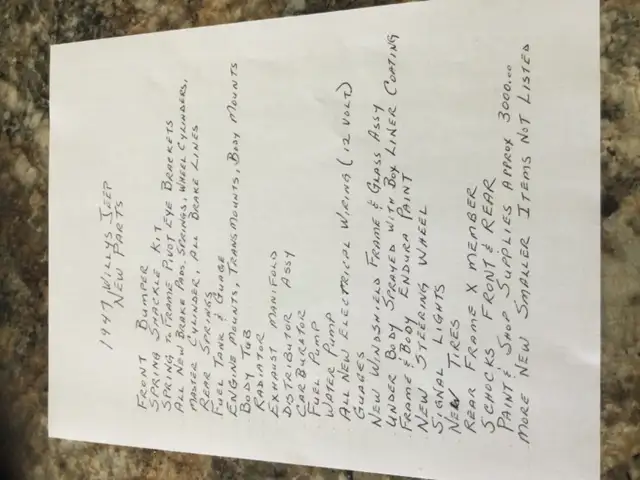 1947 WILLYS JEEP
NEW PARTS
FRONT BUMPER
SPRING SHACKLE KIT
SPRING TO FRAME PIVOT EYE BRACKETS
ALL NEW BRAKE PADS, SPRINGS, WHEEL CYLINDERS,
MASTER CYLINDER, ALL BRAKE LINES
REAR SPRINGS
FUEL TANK & GUAGE
ENGINE MOUNTS, TRANS MOUNTS, BODY MOUNTS
BODY TUB
RADIATOR
EXHAUST MANIFOLD
DISTRIBUTOR ASSY
CARBURATOR
FUEL PUMP
WATER PUMP
ALL NEW ELECTRICAL WIRING (12 VOLT)
GUAGES
NEW WINDSHIELD FRAME & GLASS ASSY
UNDER BODY SPRAYED WITH BOX LINER COATING
FRAME & BODY ENDURA PAINT
NEW STEERING WHEEL
SIGNAL LIGHTS
NEW TIRES
REAR FRAME X MEMBER
SCHOCKS FRONT & REAR
PAINT & SHOP SUPPLIES APPROX 3000.00
MORE NEW SMALLER ITEMS NOT LISTED